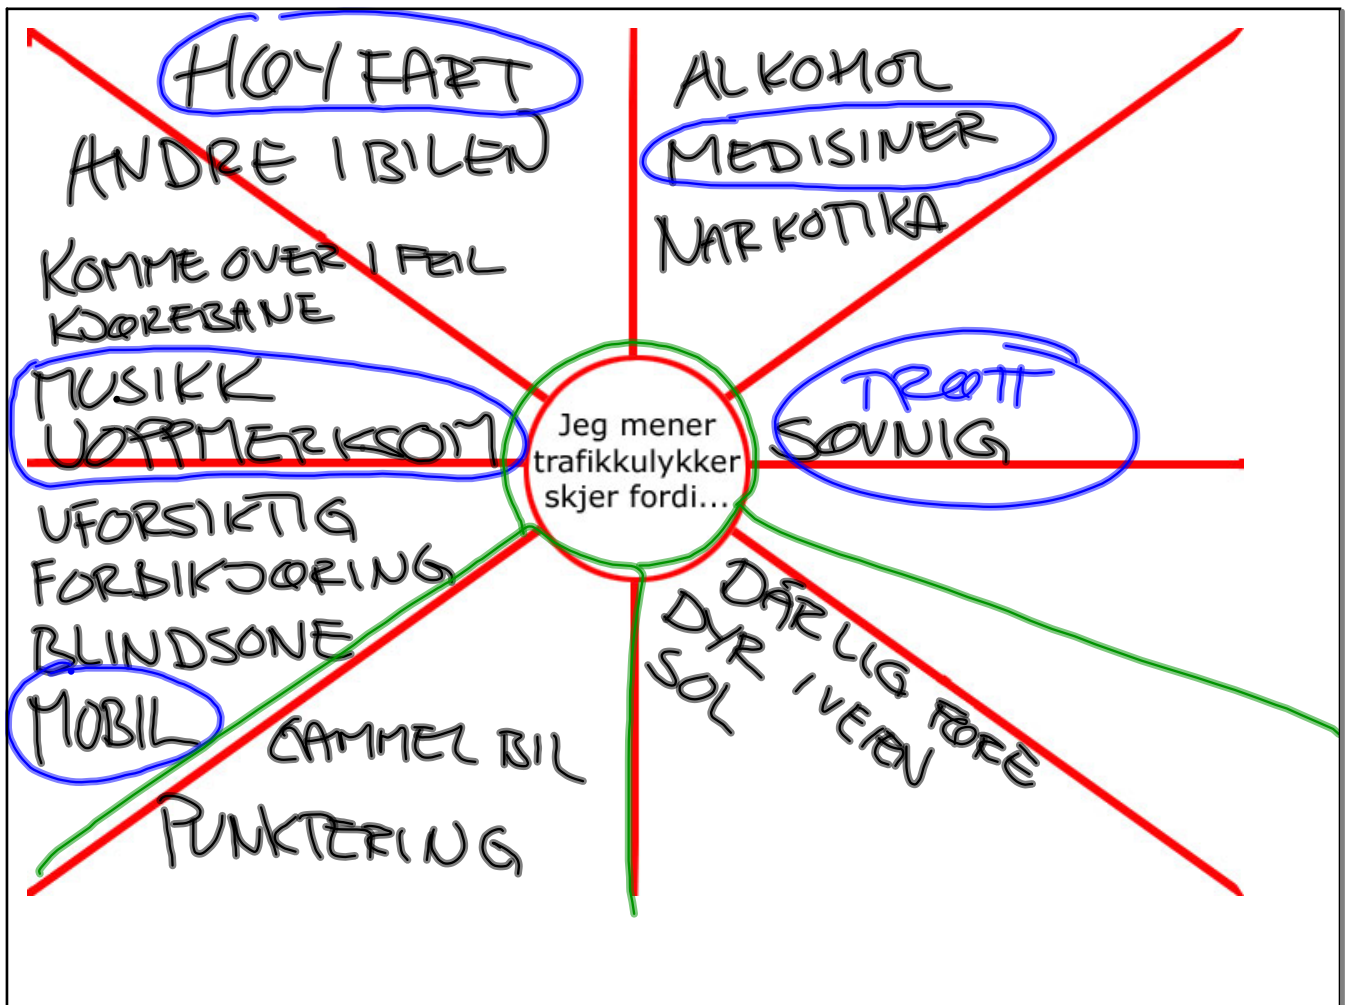 HØY FART
ANDRE I BILEN
KOMME OVER I FEIL
KJØREBANE
MUSIKK
UOPPMERKSOM
UFORSIKTIG
FORBIKJØRING
BLINDSONE
MOBIL
GAMMEL BIL
PUNKTERING
ALKOHOL
MEDISINER
NARKOTIKA
TRØTT
SØVNIG
Jeg mener
trafikkulykker
skjer fordi...
DÅRLIG FØRE
DYR I VEIEN
SOL